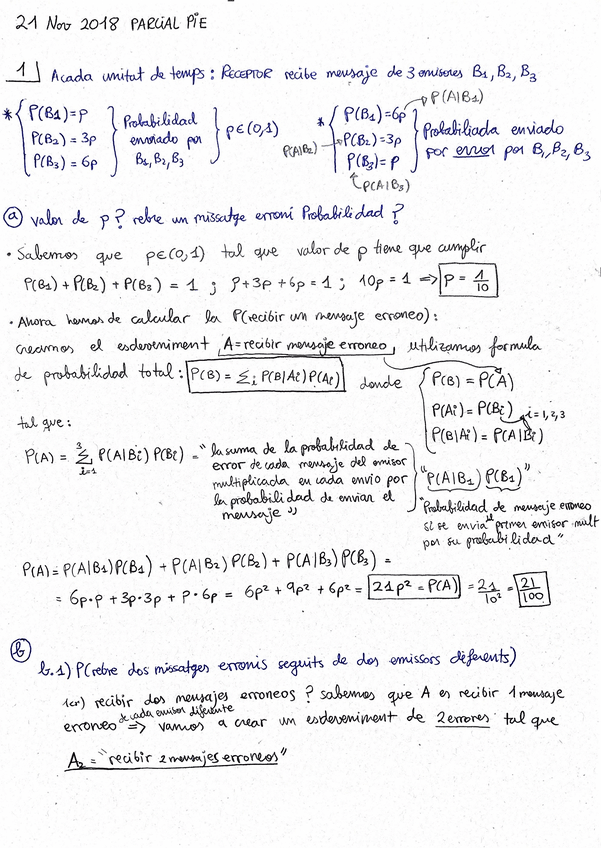 21 Nov 2018 PARCIAL PIE
1 Acada unitat de temps : RECEPTOR recibe mensaje de 3 emisores B1, B2, B3
* { P(B1)=p P(B2)=3p P(B3)=6p } Probabilidad enviado por B1, B2, B3 } p∈(0,1)
* { P(B1)=6p → P(A|B1) P(A|B2) → P(B2)=3p P(B3)=p P(A|B3) } Probabiliada enviado por error por B1, B2, B3
a) valor de p? rebre un missatge erroni Probabilidad?
• Sabemos que p∈(0,1) tal que valor de p tiene que cumplir
P(B1) + P(B2) + P(B3) = 1 ; p+3p+6p=1 ; 10p=1 ⇒ p = 1/10
• Ahora hemos de calcular la P(recibir un mensaje erroneo):
creamos el esdeveniment A=recibir mensaje erroneo, utilizamos formula
de probabilidad total: P(B) = Σi P(B|Ai)P(Ai) donde { P(B) = P(A)
P(Ai) = P(Bi) i=1,2,3
P(B|Ai) = P(A|Bi)
tal que:
P(A) = Σ3i=1 P(A|Bi) P(Bi) = "la suma de la probabilidad de
error de cada mensaje del emisor
multiplicada en cada envio por
la probabilidad de enviar el
mensaje"
"P(A|B1) P(B1)"
"Probabilidad de mensaje erroneo
si se envia primer emisor mult
por su probabilidad"
P(A) = P(A|B1)P(B1) + P(A|B2) P(B2) + P(A|B3) P(B3) =
= 6p·p + 3p·3p + p·6p = 6p² + 9p² + 6p² = 21p² = P(A) = 21/10² = 21/100
b)
b.1) P(rebre dos missatges erronis seguits de dos emissors diferents)
1er) recibir dos mensajes erroneos ? sabemos que A es recibir 1 mensaje
de cada emisor diferente
erroneo ⇒ vamos a crear un esdeveniment de 2 errores tal que
A2 = "recibir 2 mensajes erroneos"